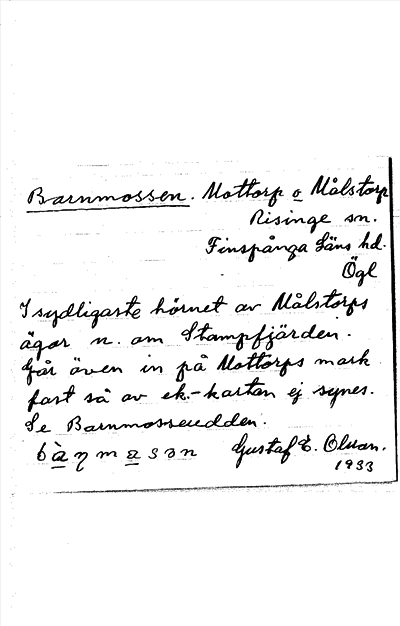 Barnmossen. Mottorp o Målstorp
Risinge sn.
Finspånga Läns hd.
Ögl
I sydligaste hörnet av Målstorps
ägor n. om Stampfjärden.
Går även in på Mottorps mark
fast så av ek.-kartan ej synes.
Se Barnmosseudden.
bàꞃmasən Gustaf E. Olsson.
1933